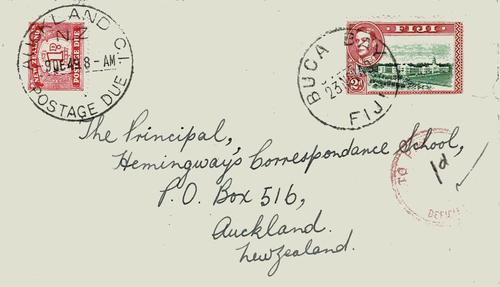 AUCKLAND C.1
N.Z.
9 DE 49 8 - AM
POSTAGE DUE
NEW ZEALAND
POSTAGE DUE
FIJI
2d
BUCA
FIJI
The Principal,
Hemingway's Correspondance School,
P.O. Box 516,
Auckland.
New Zealand.
TO
1d